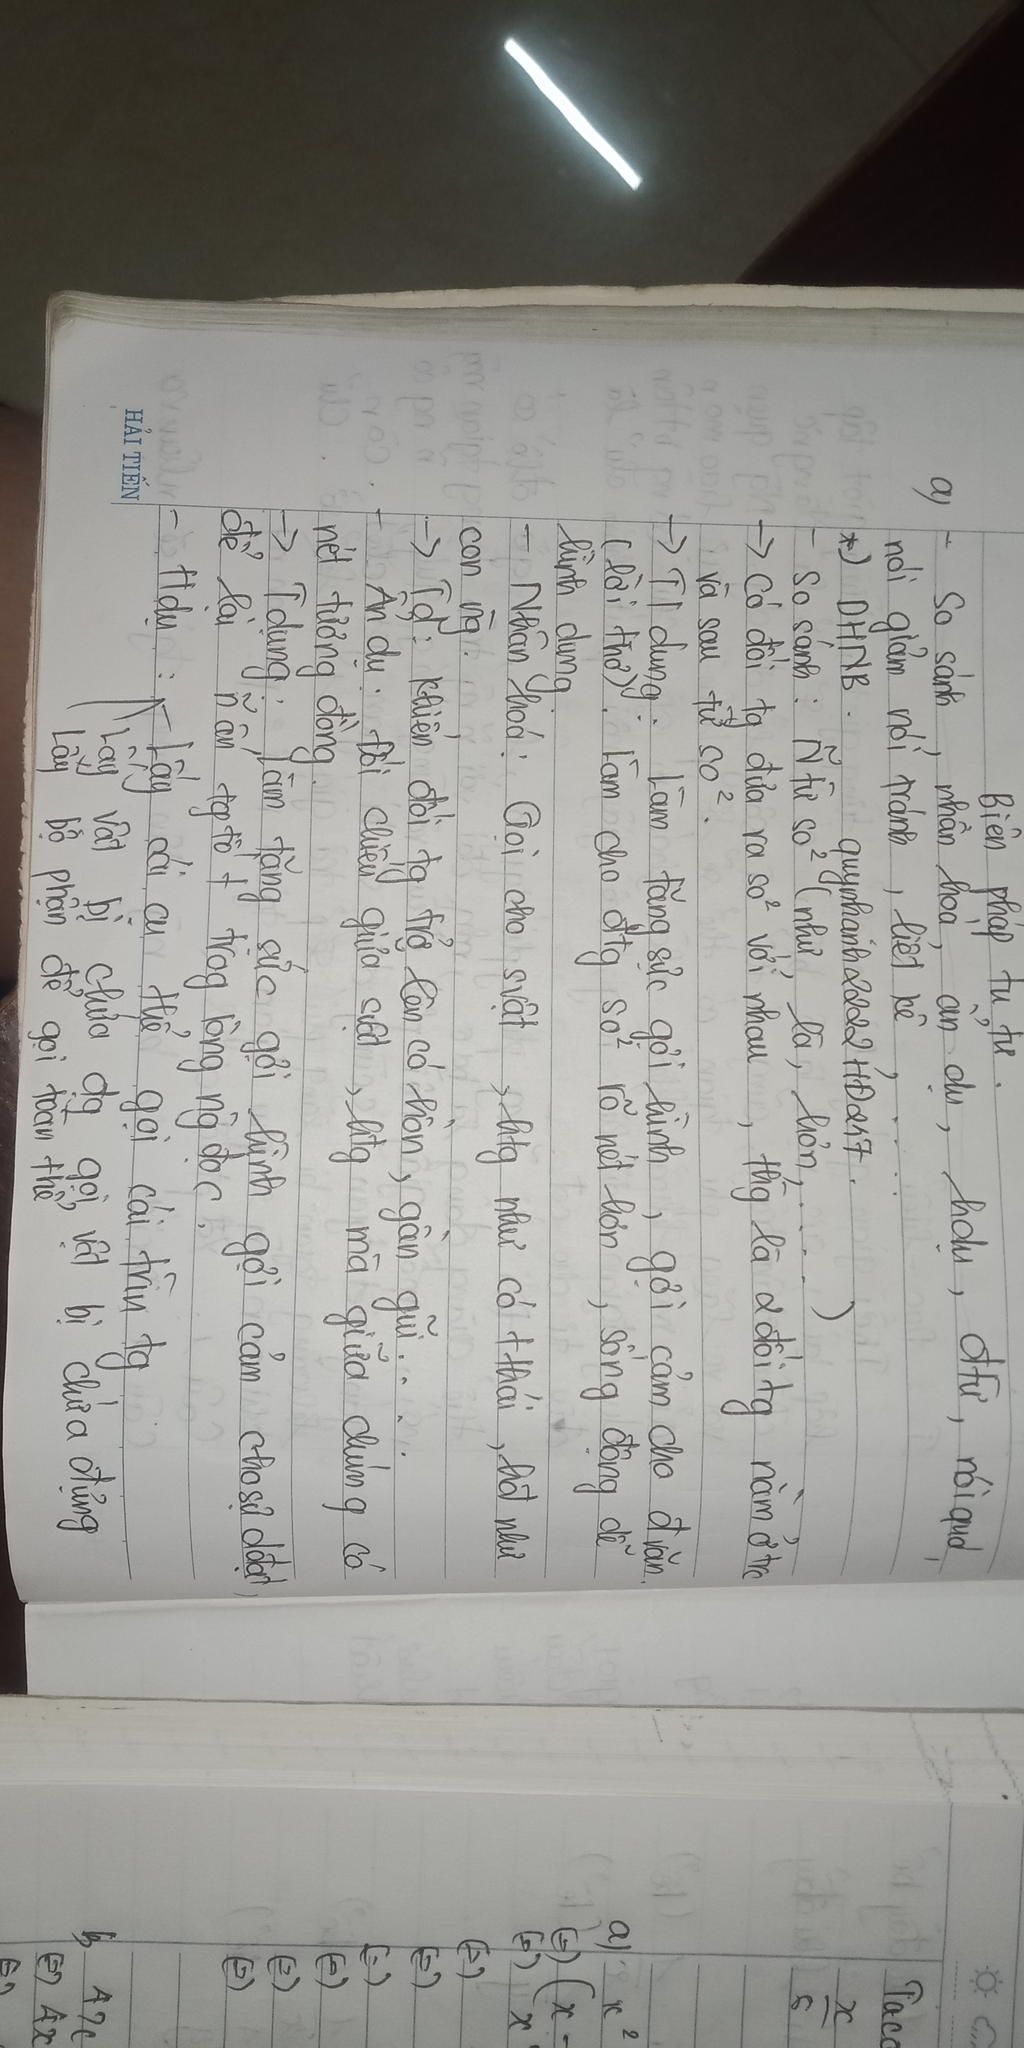 Biện pháp tu từ.
a) - So sánh, nhân hóa, ẩn dụ, hdụ, đtừ, nói quá,
nói giảm nói tránh, liệt kê, .....
*) DHNB. quynhanh2222HĐ247.
- So sánh: Ñ từ so² (như, là, hơn, ..... )
→ Có đối tg đưa ra so² với nhau, thg là 2 đối tg nằm ở tr
và sau từ so².
→ T dụng: Làm tăng sức gợi hình, gợi cảm cho đ văn.
(lời thơ). Làm cho đtg so² rõ nét hơn, sống động dễ
hình dung
- Nhân hoá: Gọi cho svật, htg như có t thái, hđ như
con ng.
→ Td: khiến đối tg trở lên có hồn, gần gũi....
- Ẩn dụ: đối chiếu giữa svật, htg mà giữa chúng có
nét tương đồng.
→ T dụng: Làm tăng sức gợi hình gợi cảm cho sự dđạt,
để lại ấn tg tốt trog lòng ng đọc.
- Hdụ: - Lấy cái cụ thể gọi cái trừu tg
Lấy vật bị chứa đg gọi vật bị chứa đựng
Lấy bộ phận để gọi toàn thể
HẢI TIẾN
x
5
a) x²
(=) (x -
(=) x
(=)
(=)
(=)
(=)
(=)
(=)
b